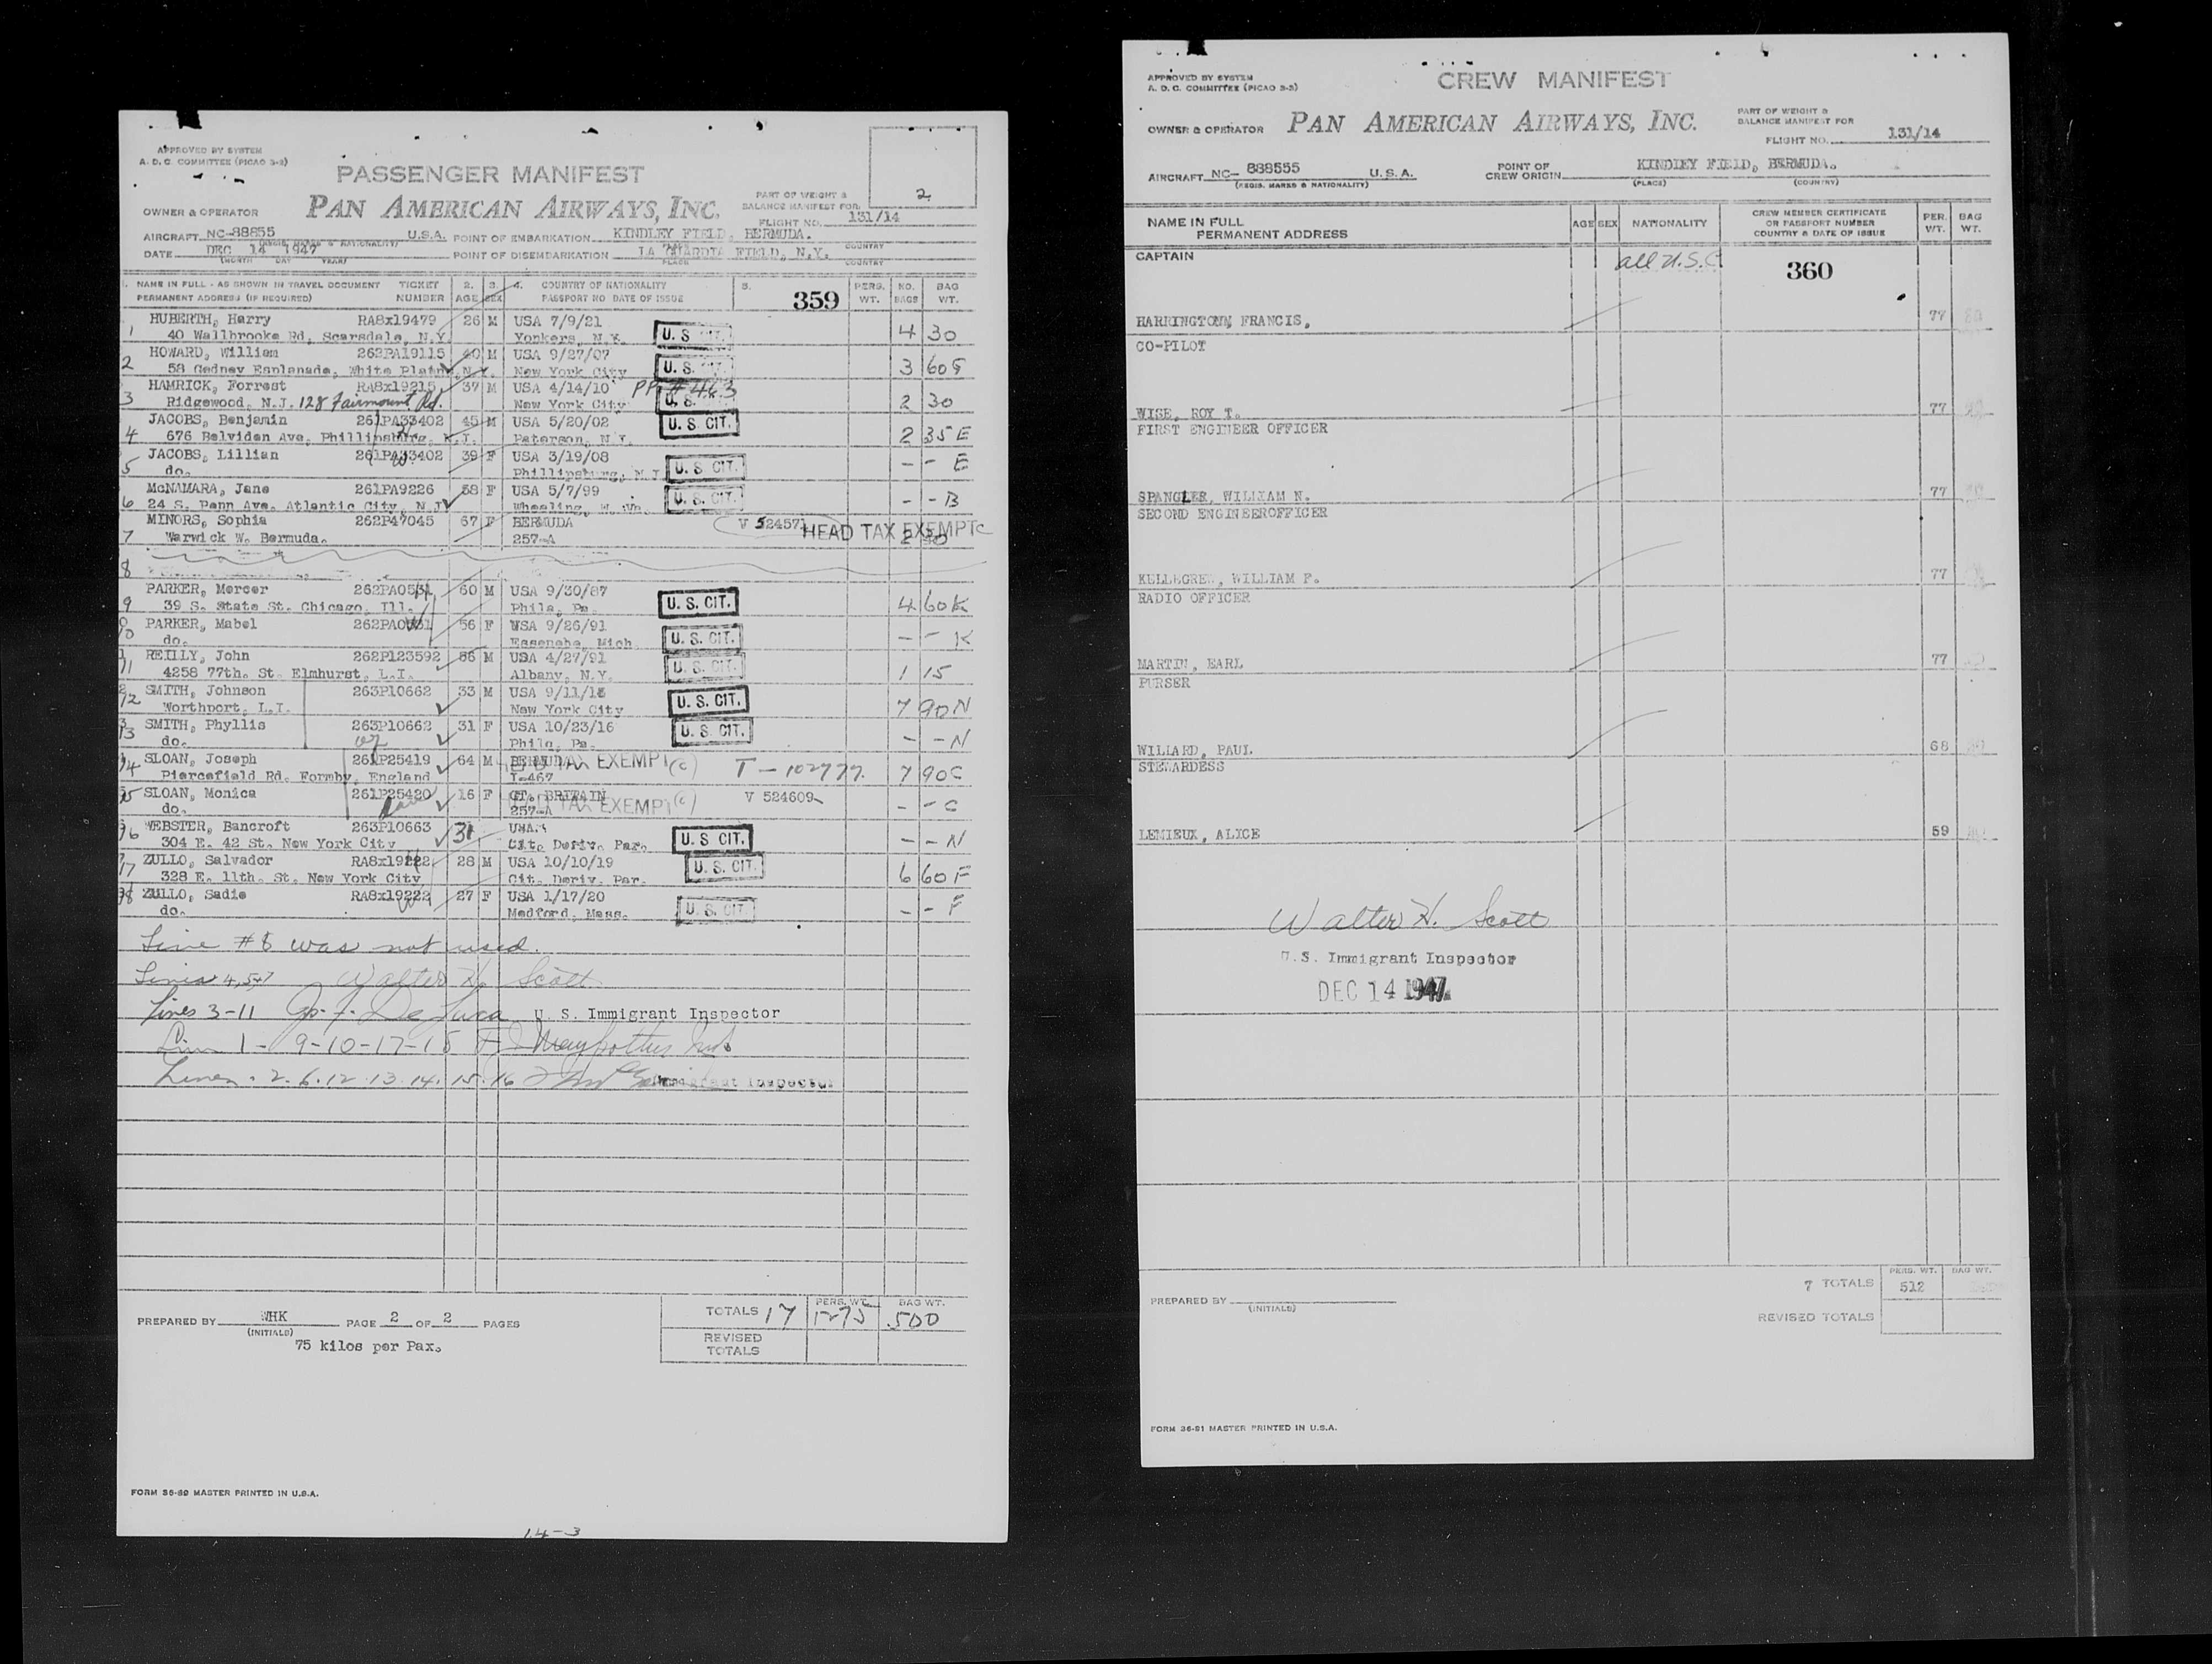 APPROVED BY SYSTEM
A. D. C. COMMITTEE (PICAO 3-2)
PASSENGER MANIFEST
2
OWNER & OPERATOR PAN AMERICAN AIRWAYS, INC.
PART OF WEIGHT &
BALANCE MANIFEST FOR
FLIGHT NO. 131/14
AIRCRAFT NC-88855 U.S.A. POINT OF EMBARKATION KINDLEY FIELD, BERMUDA.
(REGIS. MARKS & NATIONALITY) COUNTRY
DATE DEC 14 1947 POINT OF DISEMBARKATION LA GUARDIA FIELD, N.Y.
(MONTH DAY YEAR) PLACE COUNTRY
1. NAME IN FULL - AS SHOWN IN TRAVEL DOCUMENT TICKET 2. 3. 4. COUNTRY OF NATIONALITY 5. 359 PERS. NO. BAG
PERMANENT ADDRESS (IF REQUIRED) NUMBER AGE SEX PASSPORT NO DATE OF ISSUE WT. BAGS WT.
HUBERTH, Harry RA8x19479 26 M USA 7/9/21
1 40 Wallbrooke Rd, Scarsdale, N.Y. Yonkers, N.Y. U. S 4 30
HOWARD, William 262PA19115 40 M USA 9/27/07
2 58 Gedney Esplanade, White Plains, N.Y. New York City U. S. 3 60
HAMRICK, Forrest RA8x19215 37 M USA 4/14/10 PP # 463
3 Ridgewood, N.J. 128 Fairmount Rd. New York City U. S. 2 30
JACOBS, Benjamin 261PA33402 45 M USA 5/20/02 U. S. CIT.
4 676 Belviden Ave, Phillipsburg, N.J. Paterson, N.J. 2 35 E
JACOBS, Lillian 261PA33402 39 F USA 3/19/08
5 do. Phillipsburg, N.J. U. S. CIT. - - E
McNAMARA, Jane 261PA9226 58 F USA 5/7/99
6 24 S. Penn Ave. Atlantic City, N.J. Wheeling, W. Va. U. S. CIT. - - B
MINORS, Sophia 262P47045 67 F BERMUDA V 524571 HEAD TAX EXEMPT C
7 Warwick W. Bermuda. 257-A 2
8
PARKER, Mercer 262PA0531 60 M USA 9/30/87
9 39 S. State St. Chicago, Ill. Phila, Pa. U. S. CIT. 4 60 K
PARKER, Mabel 56 F USA 9/26/91
10 do. Essenaba, Mich. U. S. CIT. - - K
REILLY, John 262P123592 56 M USA 4/27/91
11 4258 77th. St. Elmhurst, L.I. Albany, N.Y. U. S. CIT. 1 15
SMITH, Johnson 263P10662 33 M USA
12 Worthport, L.I. New York City U. S. CIT. 7 90 N
SMITH, Phyllis 263P10662 31 F USA 10/23/16
13 do. Phila, Pa. U. S. CIT. - - N
SLOAN, Joseph 261P25419 64 M BERMUDA TAX EXEMPT (C) T-102777.
14 Piercefield Rd. Formby, England I-467 7 90 C
SLOAN, Monica 261P25420 16 F GT. BRITAIN TAX EXEMPT (C) V 524609
15 do. 257-A - - C
WEBSTER, Bancroft 263P10663 31 USA
16 304 E. 42 St. New York City Cit. Deriv. Par. U. S. CIT. - - N
ZULLO, Salvador RA8x19222 28 M USA 10/10/19
17 328 E. 11th. St. New York City Cit. Deriv. Par. U. S. CIT. 6 60 F
ZULLO, Sadie RA8x19222 27 F USA 1/17/20
18 do. Medford, Mass. U. S. CIT. - - F
Line #8 was not used.
Lines 4,5+7 Walter H. Scott
Lines 3-11 De Luca U. S. Immigrant Inspector
1- 9-10-17-18
Lines 2. 6. 12. 13. 14. 15. 16 Immigrant Inspector
TOTALS 17 PERS. WT. 1275 BAG WT. 500
PREPARED BY WHK PAGE 2 OF 2 PAGES
(INITIALS)
REVISED
TOTALS
75 kilos per Pax.
FORM 36-89 MASTER PRINTED IN U.S.A.
14-3
APPROVED BY SYSTEM
A. D. C. COMMITTEE (PICAO 3-3)
CREW MANIFEST
OWNER & OPERATOR PAN AMERICAN AIRWAYS, INC.
PART OF WEIGHT &
BALANCE MANIFEST FOR
FLIGHT NO. 131/14
AIRCRAFT NC- 888555 U.S.A. POINT OF
CREW ORIGIN KINDLEY FIELD, BERMUDA.
(REGIS. MARKS & NATIONALITY) (PLACE) (COUNTRY)
NAME IN FULL
PERMANENT ADDRESS
AGE SEX NATIONALITY
CREW MEMBER CERTIFICATE
OR PASSPORT NUMBER
COUNTRY & DATE OF ISSUE
PER.
WT.
BAG
WT.
CAPTAIN all U.S.C. 360
HARRINGTON, FRANCIS, 77
CO-PILOT
WISE, ROY T. 77
FIRST ENGINEER OFFICER
SPANGLER, WILLIAM N. 77
SECOND ENGINEEROFFICER
KELLEGREW, WILLIAM F. 77
RADIO OFFICER
MARTIN, EARL 77
PURSER
WILLARD, PAUL 68
STEWARDESS
LEMIEUX, ALICE 59
Walter H. Scott
U.S. Immigrant Inspector
DEC 14 1947
PERS. WT. BAG WT.
7 TOTALS 512
PREPARED BY
(INITIALS)
REVISED TOTALS
FORM 36-91 MASTER PRINTED IN U.S.A.